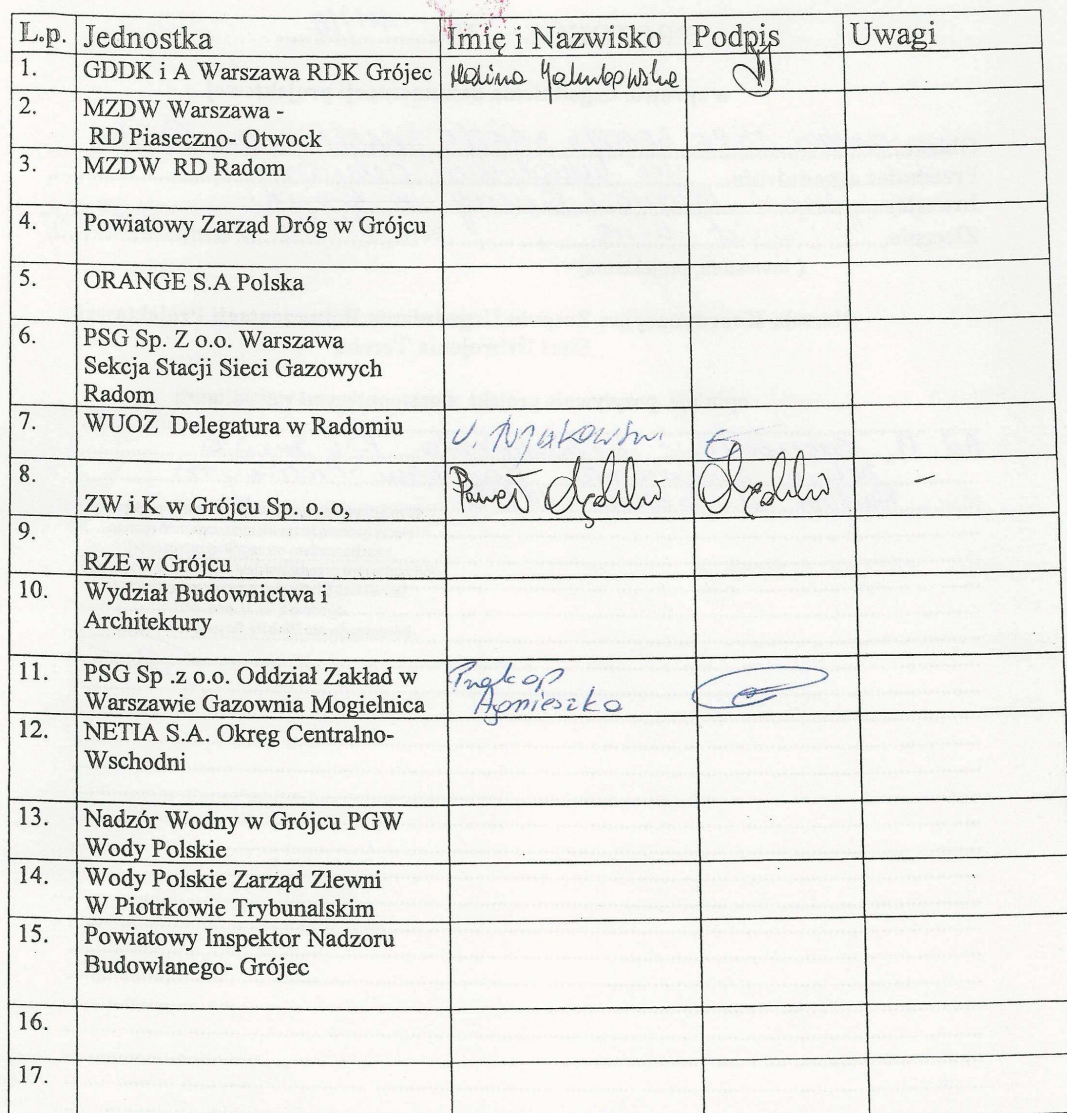 L.p. Jednostka Imię i Nazwisko Podpis Uwagi
1. GDDK i A Warszawa RDK Grójec Halina Jakubowska
2. MZDW Warszawa -
RD Piaseczno- Otwock
3. MZDW RD Radom
4. Powiatowy Zarząd Dróg w Grójcu
5. ORANGE S.A Polska
6. PSG Sp. Z o.o. Warszawa
Sekcja Stacji Sieci Gazowych
Radom
7. WUOZ Delegatura w Radomiu
8. Paweł -
ZW i K w Grójcu Sp. o.o,
9.
RZE w Grójcu
10. Wydział Budownictwa i
Architektury
11. PSG Sp .z o.o. Oddział Zakład w Prokop
Warszawie Gazownia Mogielnica Agnieszka
12. NETIA S.A. Okręg Centralno-
Wschodni
13. Nadzór Wodny w Grójcu PGW
Wody Polskie
14. Wody Polskie Zarząd Zlewni
W Piotrkowie Trybunalskim
15. Powiatowy Inspektor Nadzoru
Budowlanego- Grójec
16.
17.